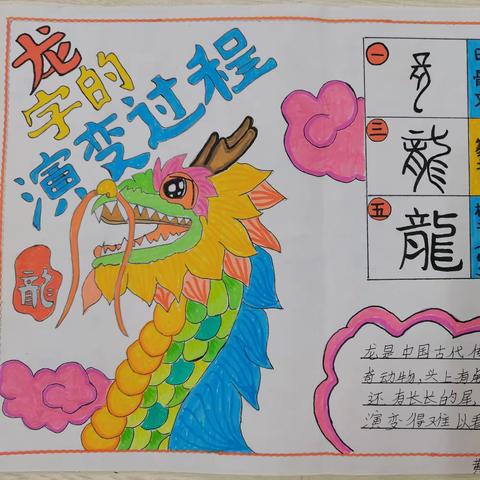 龙
字的
演变过程
龍
一
三
龍
五
龍
龙是中国古代
奇动物,头上有
还有长长的尾,
演变得难以看